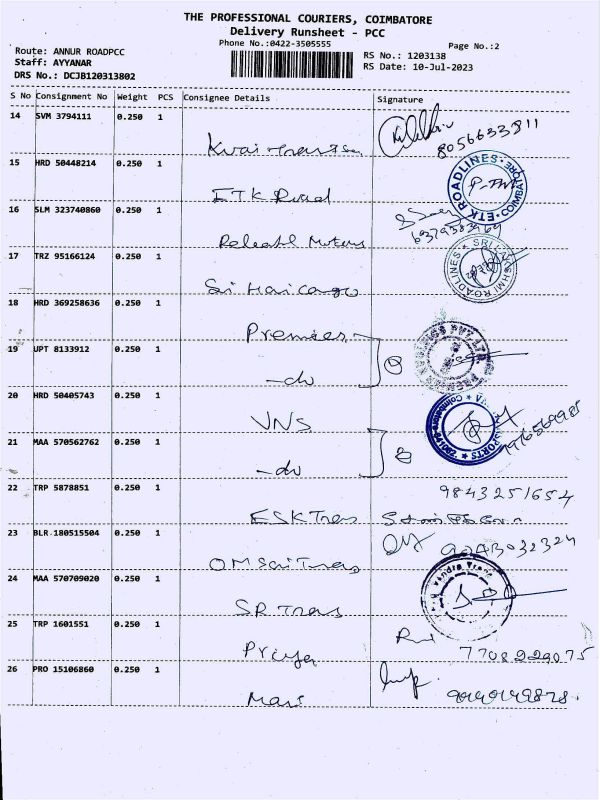 THE PROFESSIONAL COURIERS, COIMBATORE
Delivery Runsheet - PCC
Phone No.:0422-3505555
Page No.:2
Route: ANNUR ROADPCC
Staff: AYYANAR
DRS No.: DCJB120313802
RS No.: 1203138
RS Date: 10-Jul-2023
S No Consignment No Weight PCS Consignee Details Signature
14 SVM 3794111 0.250 1
8056633811
15 HRD 50448214 0.250 1
ETK Road
ETK ROADLINES COIMBATORE
16 SLM 323740860 0.250 1
Motors
6379583969
17 TRZ 95166124 0.250 1
Sri Hari cargo
SRI LAKSHMI ROADLINES
18 HRD 369258636 0.250 1
Premier
19 UPT 8133912 0.250 1
-do
20 HRD 50405743 0.250 1
VNS
21 MAA 570562762 0.250 1
-do
22 TRP 5878851 0.250 1
9843251654
ESK Trans
23 BLR 180515504 0.250 1
9043032324
OM Sai Trans
24 MAA 570709020 0.250 1
SR Trans
25 TRP 1601551 0.250 1
Priya
7708929075
26 PRO 15106860 0.250 1
Mani